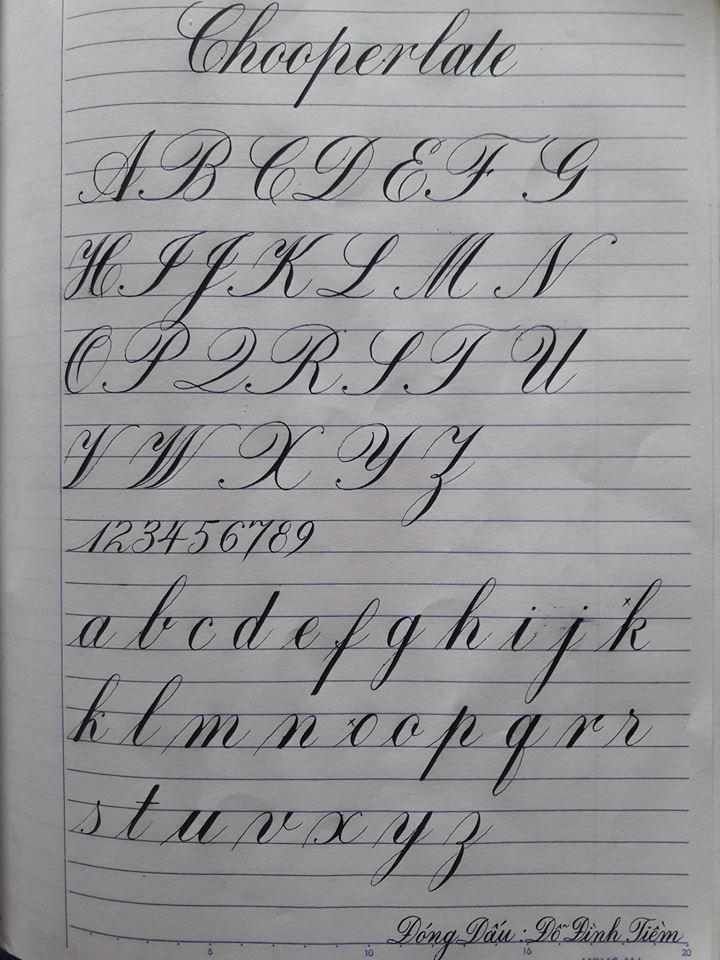 Chooperlate
A B C D E F G
H I J K L M N
O P Q R S T U
V W X Y Z
123456789
a b c d e f g h i j k
k l m n o o p q r r
s t u v x y z
Đóng Dấu : Đỗ Đình Tiềm
5 10 15 20